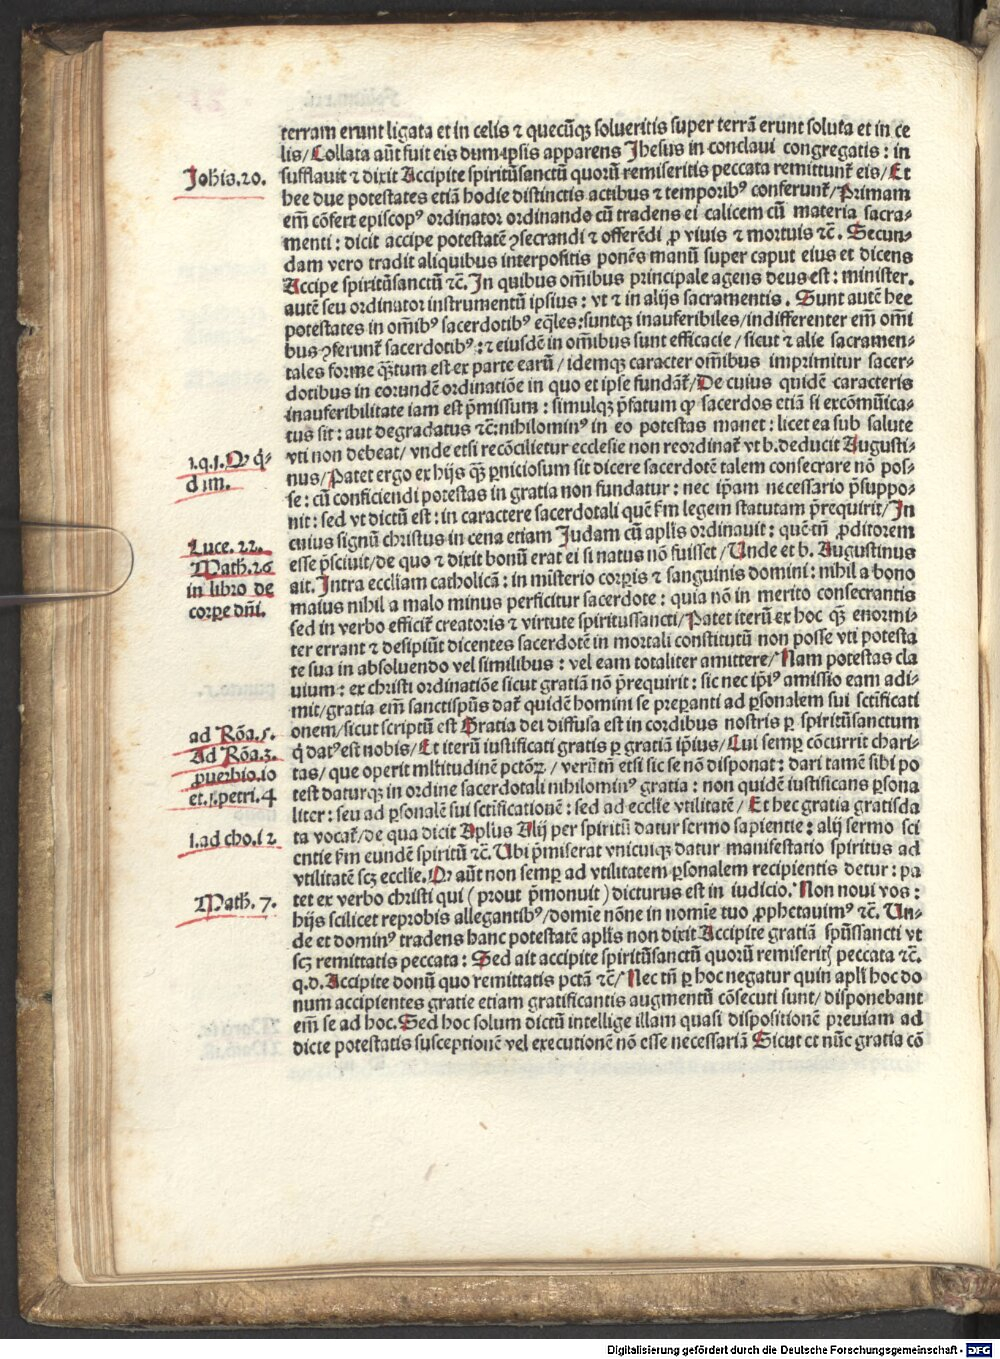 terram erunt ligata et in celis ⁊ quecūqꝫ solueritis super terrā erunt soluta et in ce
lis/ Collata aūt fuit eis dum ipsis apparens Jhesus in conclaui congregatis: in
Johis.20.
sufflauit ⁊ dixit Accipite spiritūsanctū quorū remiseritis peccata remittunt᷑ eis/ Et
hee due potestates etiā hodie distinctis actibus ⁊ temporibꝰ conferunt᷑/ Primam
em̄ cōfert episcopꝰ ordinator ordinando cū tradens ei calicem cū materia sacra-
menti: dicit accipe potestatē ꝯsecrandi ⁊ offerēdi ꝓ viuis ⁊ mortuis ⁊c̄. Secun-
dam vero tradit aliquibus interpositis ponēs manū super caput eius et dicens
Accipe spiritūsanctū ⁊c̄. In quibus om̄ibus principale agens deus est: minister.
autē seu ordinator instrumentū ipsius: vt ⁊ in alijs sacramentis. Sunt autē hee
potestates in om̄ibꝰ sacerdotibꝰ eq̄les: suntqꝫ inauferibiles/ indifferenter em̄ om̄i
bus ꝯferunt᷑ sacerdotibꝰ: ⁊ eiusdē in om̄ibus sunt efficacie/ sicut ⁊ alie sacramen-
tales forme qꝫtum est ex parte earū/ idemqꝫ caracter om̄ibus imprimitur sacer-
dotibus in eorundē ordinatiōe in quo et ipse fundāt᷑/ De cuius quidē caracteris
inauferibilitate iam est p̄missum: simulqꝫ p̄fatum ꝙ sacerdos etiā si excōmūica-
tus sit: aut degradatus ⁊c̄: nihilominꝰ in eo potestas manet: licet ea sub salute
1.q.1. Q q̄-
vti non debeat/ vnde etsi recōcilietur ecclesie non reordinat᷑ vt b. deducit Augusti-
dim.
nus/ Patet ergo ex hijs qꝫ ꝑniciosum sit dicere sacerdotē talem consecrare nō pos-
se: cū conficiendi potestas in gratia non fundatur: nec ip̄am necessario p̄suppo-
nit: sed vt dictū est: in caractere sacerdotali quē ẜm legem statutam p̄requirit/ In
Luce. 22.
cuius signū christus in cena etiam Judam cū aplis ordinauit: quē tn̄ ꝓditorem
Math.26
esse p̄sciuit/ de quo ⁊ dixit bonū erat ei si natus nō fuisset/ Unde et b. Augustinus
in libro de
ait. Intra eccliam catholicā: in misterio corꝑis ⁊ sanguinis domini: nihil a bono
corꝑe dn̄i.
maius nihil a malo minus perficitur sacerdote: quia nō in merito consecrantis
sed in verbo efficit᷑ creatoris ⁊ virtute spiritussancti/ Patet iterū ex hoc qꝫ enormi-
ter errant ⁊ desipiūt dicentes sacerdotē in mortali constitutū non posse vti potesta
te sua in absoluendo vel similibus: vel eam totaliter amittere/ Nam potestas cla
uium: ex christi ordinatiōe sicut gratiā nō p̄requirit: sic nec ip̄iꝰ amissio eam adi-
mit/ gratia em̄ sanctispūs dat᷑ quidē homini se preparanti ad ꝑsonalem sui sctificati
ad Rōa.5.
onem/ sicut scriptū est Gratia dei diffusa est in cordibus nostris ꝑ spiritūsanctum
Ad Rōa.3.
q̇ datꝰ est nobis/ Et iterū iustificati gratis ꝑ gratiā ip̄ius/ Cui semꝑ cōcurrit chari-
ꝓuerbio.10
tas/ que operit ml̄titudinē pctōꝝ/ verūtn̄ etsi sic se nō disponat: dari tamē sibi po
et.1.petri.4
test daturqꝫ in ordine sacerdotali nihilominꝰ gratia: non quidē iustificans ꝑsona
liter: seu ad ꝑsonalē sui sctificationē: sed ad ecclie vtilitatē/ Et hec gratia gratisda
1.ad cho.12
ta vocat᷑/ de qua dicit Aplus Alij per spiritū datur sermo sapientie: alij sermo sci
entie ẜm eundē spiritū ⁊c̄. Ubi p̄miserat vnicuiqꝫ datur manifestatio spiritus ad
vtilitatē scꝫ ecclie. Q aūt non semꝑ ad vtilitatem ꝑsonalem recipientis detur: pa
Math. 7.
tet ex verbo christi qui (prout p̄monuit) dicturus est in iudicio. Non noui vos:
hijs scilicet reprobis allegantibꝰ/ domīe nōne in nomīe tuo ꝓphetauimꝰ ⁊c̄. Un-
de et dominꝰ tradens hanc potestatē aplis non dixit Accipite gratiā spūssancti vt
scꝫ remittatis peccata: Sed ait accipite spiritūsanctū quorū remiseritꝭ peccata ⁊c̄.
q.d. Accipite donū quo remittatis pctā ⁊c̄/ Nec tn̄ ꝑ hoc negatur quin apli hoc do
num accipientes gratie etiam gratificantis augmentū cōsecuti sunt/ disponebant
em̄ se ad hoc. Sed hoc solum dictū intellige illam quasi dispositionē preuiam ad
dicte potestatis susceptionē vel executionē nō esse necessariā Sicut et nūc gratia cō
Digitalisierung gefördert durch die Deutsche Forschungsgemeinschaft - DFG